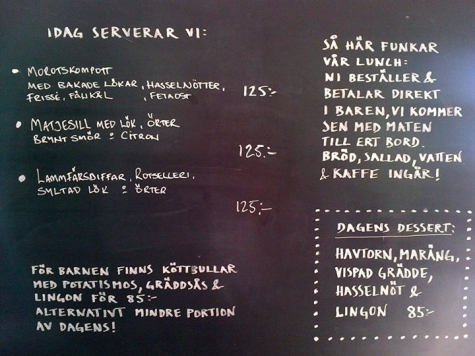 IDAG SERVERAR VI:
• MOROTSKOMPOTT
MED BAKADE LÖKAR, HASSELNÖTTER,
FRISSE, FÄNKÅL, FETAOST 125:-
• MATJESILL MED LÖK, ÖRTER
BRYNT SMÖR & CITRON
125:-
• LAMMFÄRSBIFFAR, ROTSELLERI,
SYLTAD LÖK & ÖRTER
125:-
FÖR BARNEN FINNS KÖTTBULLAR
MED POTATISMOS, GRÄDDSÅS &
LINGON FÖR 85:-
ALTERNATIVT MINDRE PORTION
AV DAGENS!
SÅ HÄR FUNKAR
VÅR LUNCH:
NI BESTÄLLER &
BETALAR DIREKT
I BAREN, VI KOMMER
SEN MED MATEN
TILL ERT BORD.
BRÖD, SALLAD, VATTEN
& KAFFE INGÅR!
DAGENS DESSERT:
HAVTORN, MARÄNG,
VISPAD GRÄDDE,
HASSELNÖT &
LINGON 85:-